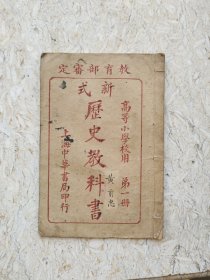 教育部審定
新式
高等小學校用　第一冊
歷史教科書
上海中華書局印行